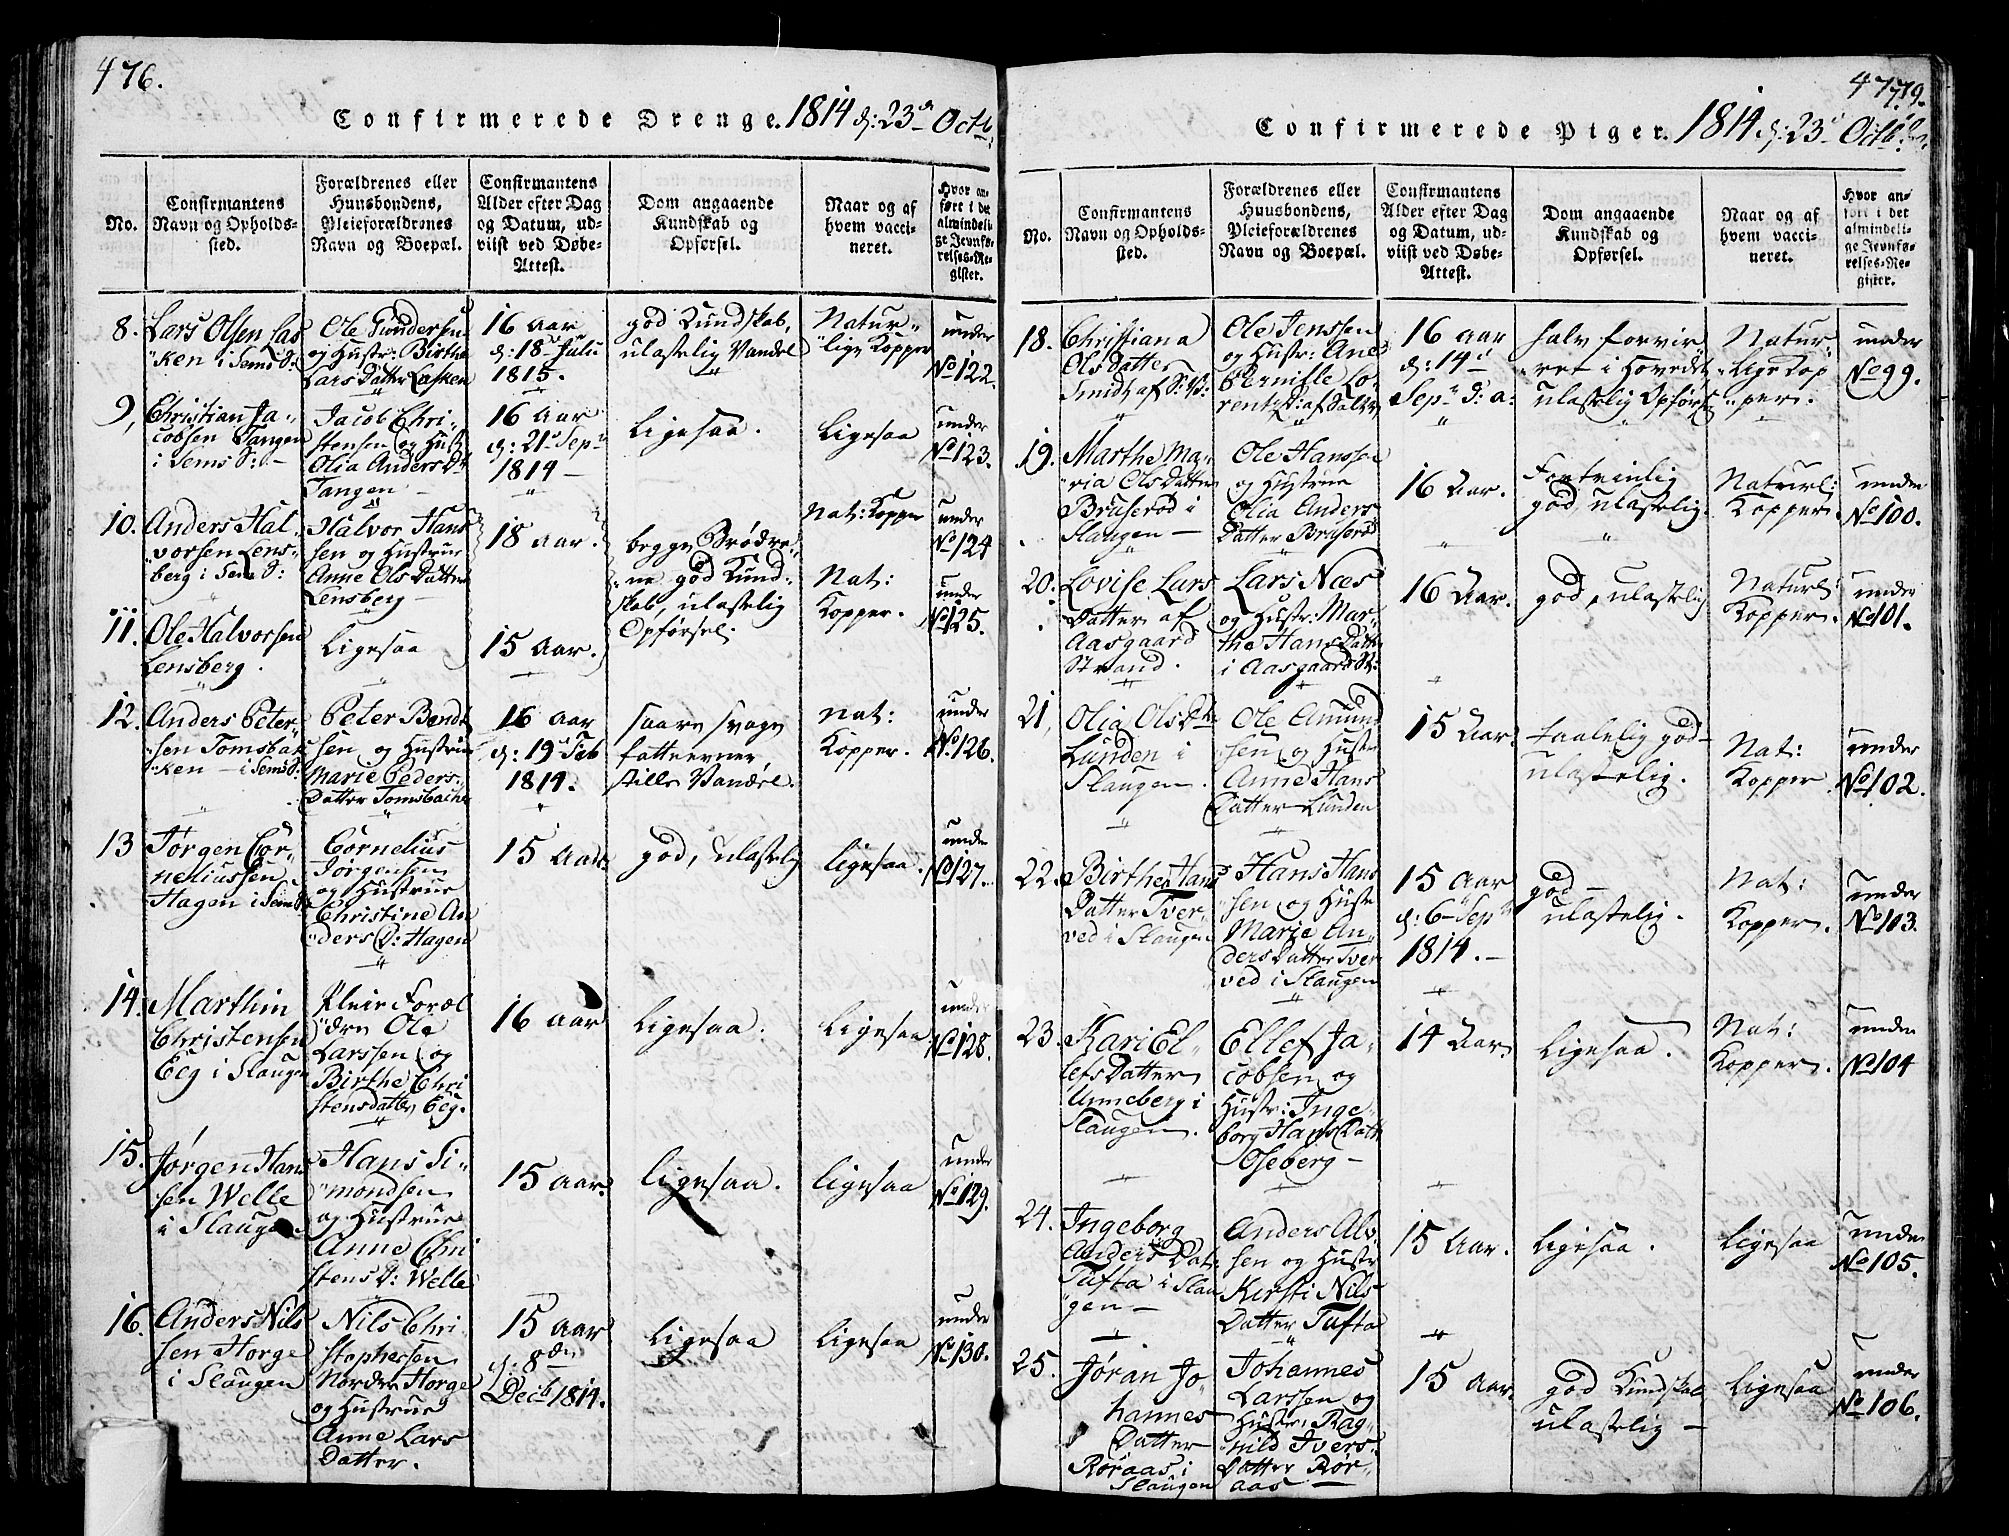 476.
Confirmerede Drenge. 1814 d: 23de Octb:
No.
Confirmantens Navn og Opholds-sted.
Forældrenes eller Huusbondens, Pleieforældrenes Navn og Boepæl.
Confirmantens Alder efter Dag og Datum, ud-viist ved Døbe-Attest.
Dom angaaende Kundskab og Opførsel.
Naar og af hvem vacci-neret.
Hvor an-ført i det almindeli-ge Jevnfø-relses-Re-gister.
8.
Lars Olsen Las
"ken i Sems S:
Ole Gundersen
og Hustr: Birthe
Lars Datter Lasken
16 Aar
d: 18de Julii
1815.
god Kundskab,
ulastelig Vandel
Natur-
"lige Kopper
under
No 122.
9,
Christian Ja-
cobsen Tangen
i Sems S: -
Jacob Chri-
stensen og Hust:
Olia Anders Dt
Tangen -
16 Aar
d: 21de Sepr
1814 -
Ligesaa.
Ligesaa
under
No 123.
10.
Anders Hal-
vorsen Lens-
berg i Sems S:
Halvor Hans
sen og Hustrue
Anne Ols Datter
Lensberg -
18 Aar.
begge Brødre-
ne god Kund-
skab, ulastelig
Opførsel.
Nat: Kopper
under
No 124
11.
Ole Halvorsen
Lensberg.
Ligesaa
15 Aar.
Nat:
Kopper.
under
No 125.
12.
Anders Peter-
"sen Tomsbak
"ken - i Sems S:
Peter Bendt
sen og Hustrue
Marie Peders-
Datter Tomsbakken
16 Aar
d: 19de Feb
1814.
saare svage
fatteevner,
stille Vandel.
Nat:
Kopper.
under
No. 126.
13
Jørgen Cor-
neliussen
Hagen i Sems S
Cornelius
Jørgensen
og Hustrue
Christine An
"ders D: Hagen
15 Aar.
god, ulastelig
Ligesaa.
under
No 127.
14.
Marthin
Christensen
Eeg i Slaugen
Pleie Foræl
"dre Ole
Larssen og
Birthe Chri
stensdatter Eeg.
16 Aar
Ligesaa.
Ligesaa
under
No 128.
15.
Jørgen Hans
sen Welle
i Slaugen
Hans Si-
"mondsen
og Hustrue
Anne Chri
stens D: Welle
15 Aar.
Ligesaa.
Ligesaa
under
No 129.
16.
Anders Nils
sen Horge
i Slaugen
Nils Chri-
stophersen
Nordre Horge
og Hustrue
Anne Lars
Datter.
15 Aar
d: 8de
Decb 1814.
Ligesaa
Ligesaa
under
No 130.
477.
Confirmerede Piger. 1814 d: 23de Octb:
No.
Confirmantens Navn og Opholds-sted.
Forældrenes eller Huusbondens, Pleieforældrenes Navn og Boepæl.
Confirmantens Alder efter Dag og Datum, ud-viist ved Døbe-Attest.
Dom angaaende Kundskab og Opførsel.
Naar og af hvem vacci-neret.
Hvor an-ført i det almindeli-ge Jevnfø-relses-Re-gister.
18.
Christiana
Ols Datter
Ole Jenssen
og Hustr: Ane
Pernille Lo-
16 Aar
d: 14de
Sepr d: a:
halv forvir
"ret i Hovedet,
ulastelig Opførsel
Natur
"lige Kop
"per.
under
No 99.
19.
Marthe Ma-
"ria Ols Datter
Bruserød i
Slaugen -
Ole Hanssen
og Hustrue
Olia Anders
Datter Bruserød
16 Aar.
Fortrinlig
god ulastelig.
Naturl:
Kopper.
under
No 100.
20.
Lovise Lars
Datter af
Aasgaard
Strand.
Lars Næs
og Hustr: Mar-
the Hans Datter
i Aasgaard St:
16 Aar.
god, ulastelig
Naturl:
Kopper.
under
No 101.
21,
Olia Ols Dtr
Lunden i
Slaugen.
Ole Amund
sen og Hustr
Anne Hans
Datter Lunden
15 Aar.
taalelig god-
ulastelig.
Nat:
Kopper.
under
No 102.
22.
Birthe Hans
Datter Tver-
ved i Slaugen
Hans Hans
sen og Hustr
Marie An-
ders Datter Tver
ved i Slaugen
15 Aar
d: 6te Sepbr
1814. -
god -
ulastelig.
Nat:
Kopper.
under
No 103.
23.
Kari El-
lefs Datter
Unneberg i
Slaugen.
Ellef Ja-
cobsen og
Hustr: Inge-
borg Hans Datt
Oseberg -
14 Aar.
Ligesaa.
Nat:
Kopper.
under
No 104
24.
Ingeborg
Anders Dat:
Tufta i Slau
"gen -
Anders Als-
sen og Hustr
Kirsti Nils
Datter Tufta
15 Aar.
Ligesaa.
Ligesaa
under
No 105.
25.
Jøran Jo-
hannes
Datter
Røraas i
Slaugen
Johannes
Larssen og
Hustr: Rag-
"nild Ivers-
Datter Rør-
aas -
15 Aar.
god Kundskab
ulastelig -
Ligesaa
under
No 106.